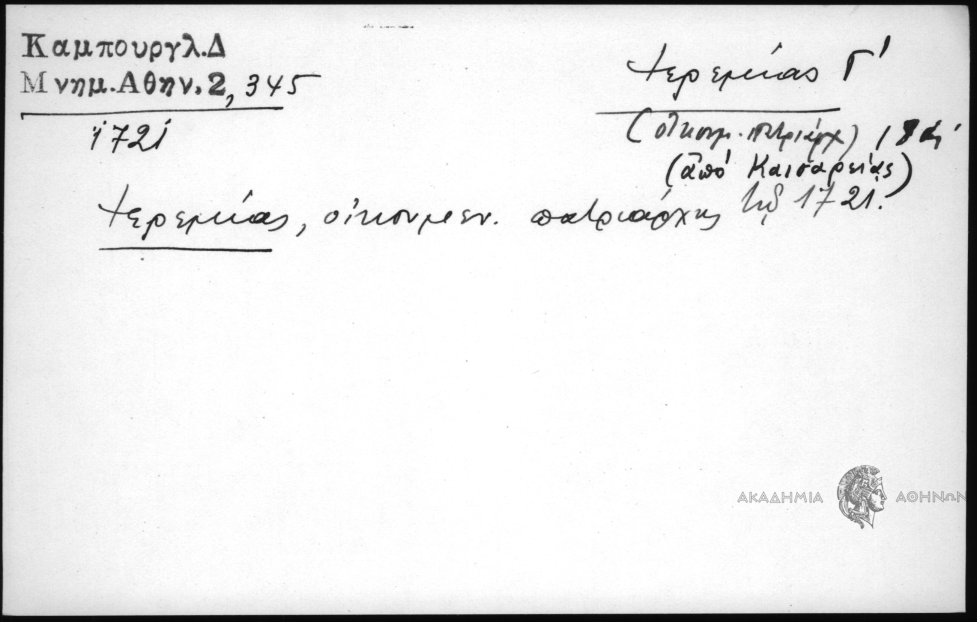 Καμπουργλ.Δ
Μνημ.Αθην.2, 345
1721
Ἱερεμίας Γ'
(οἰκουμ. πατριάρχ) 18
(ἀπό Καισαρείας)
Ἱερεμίας, οἰκουμεν. πατριάρχης 1721.
ΑΚΑΔΗΜΙΑ ΑΘΗΝΩΝ